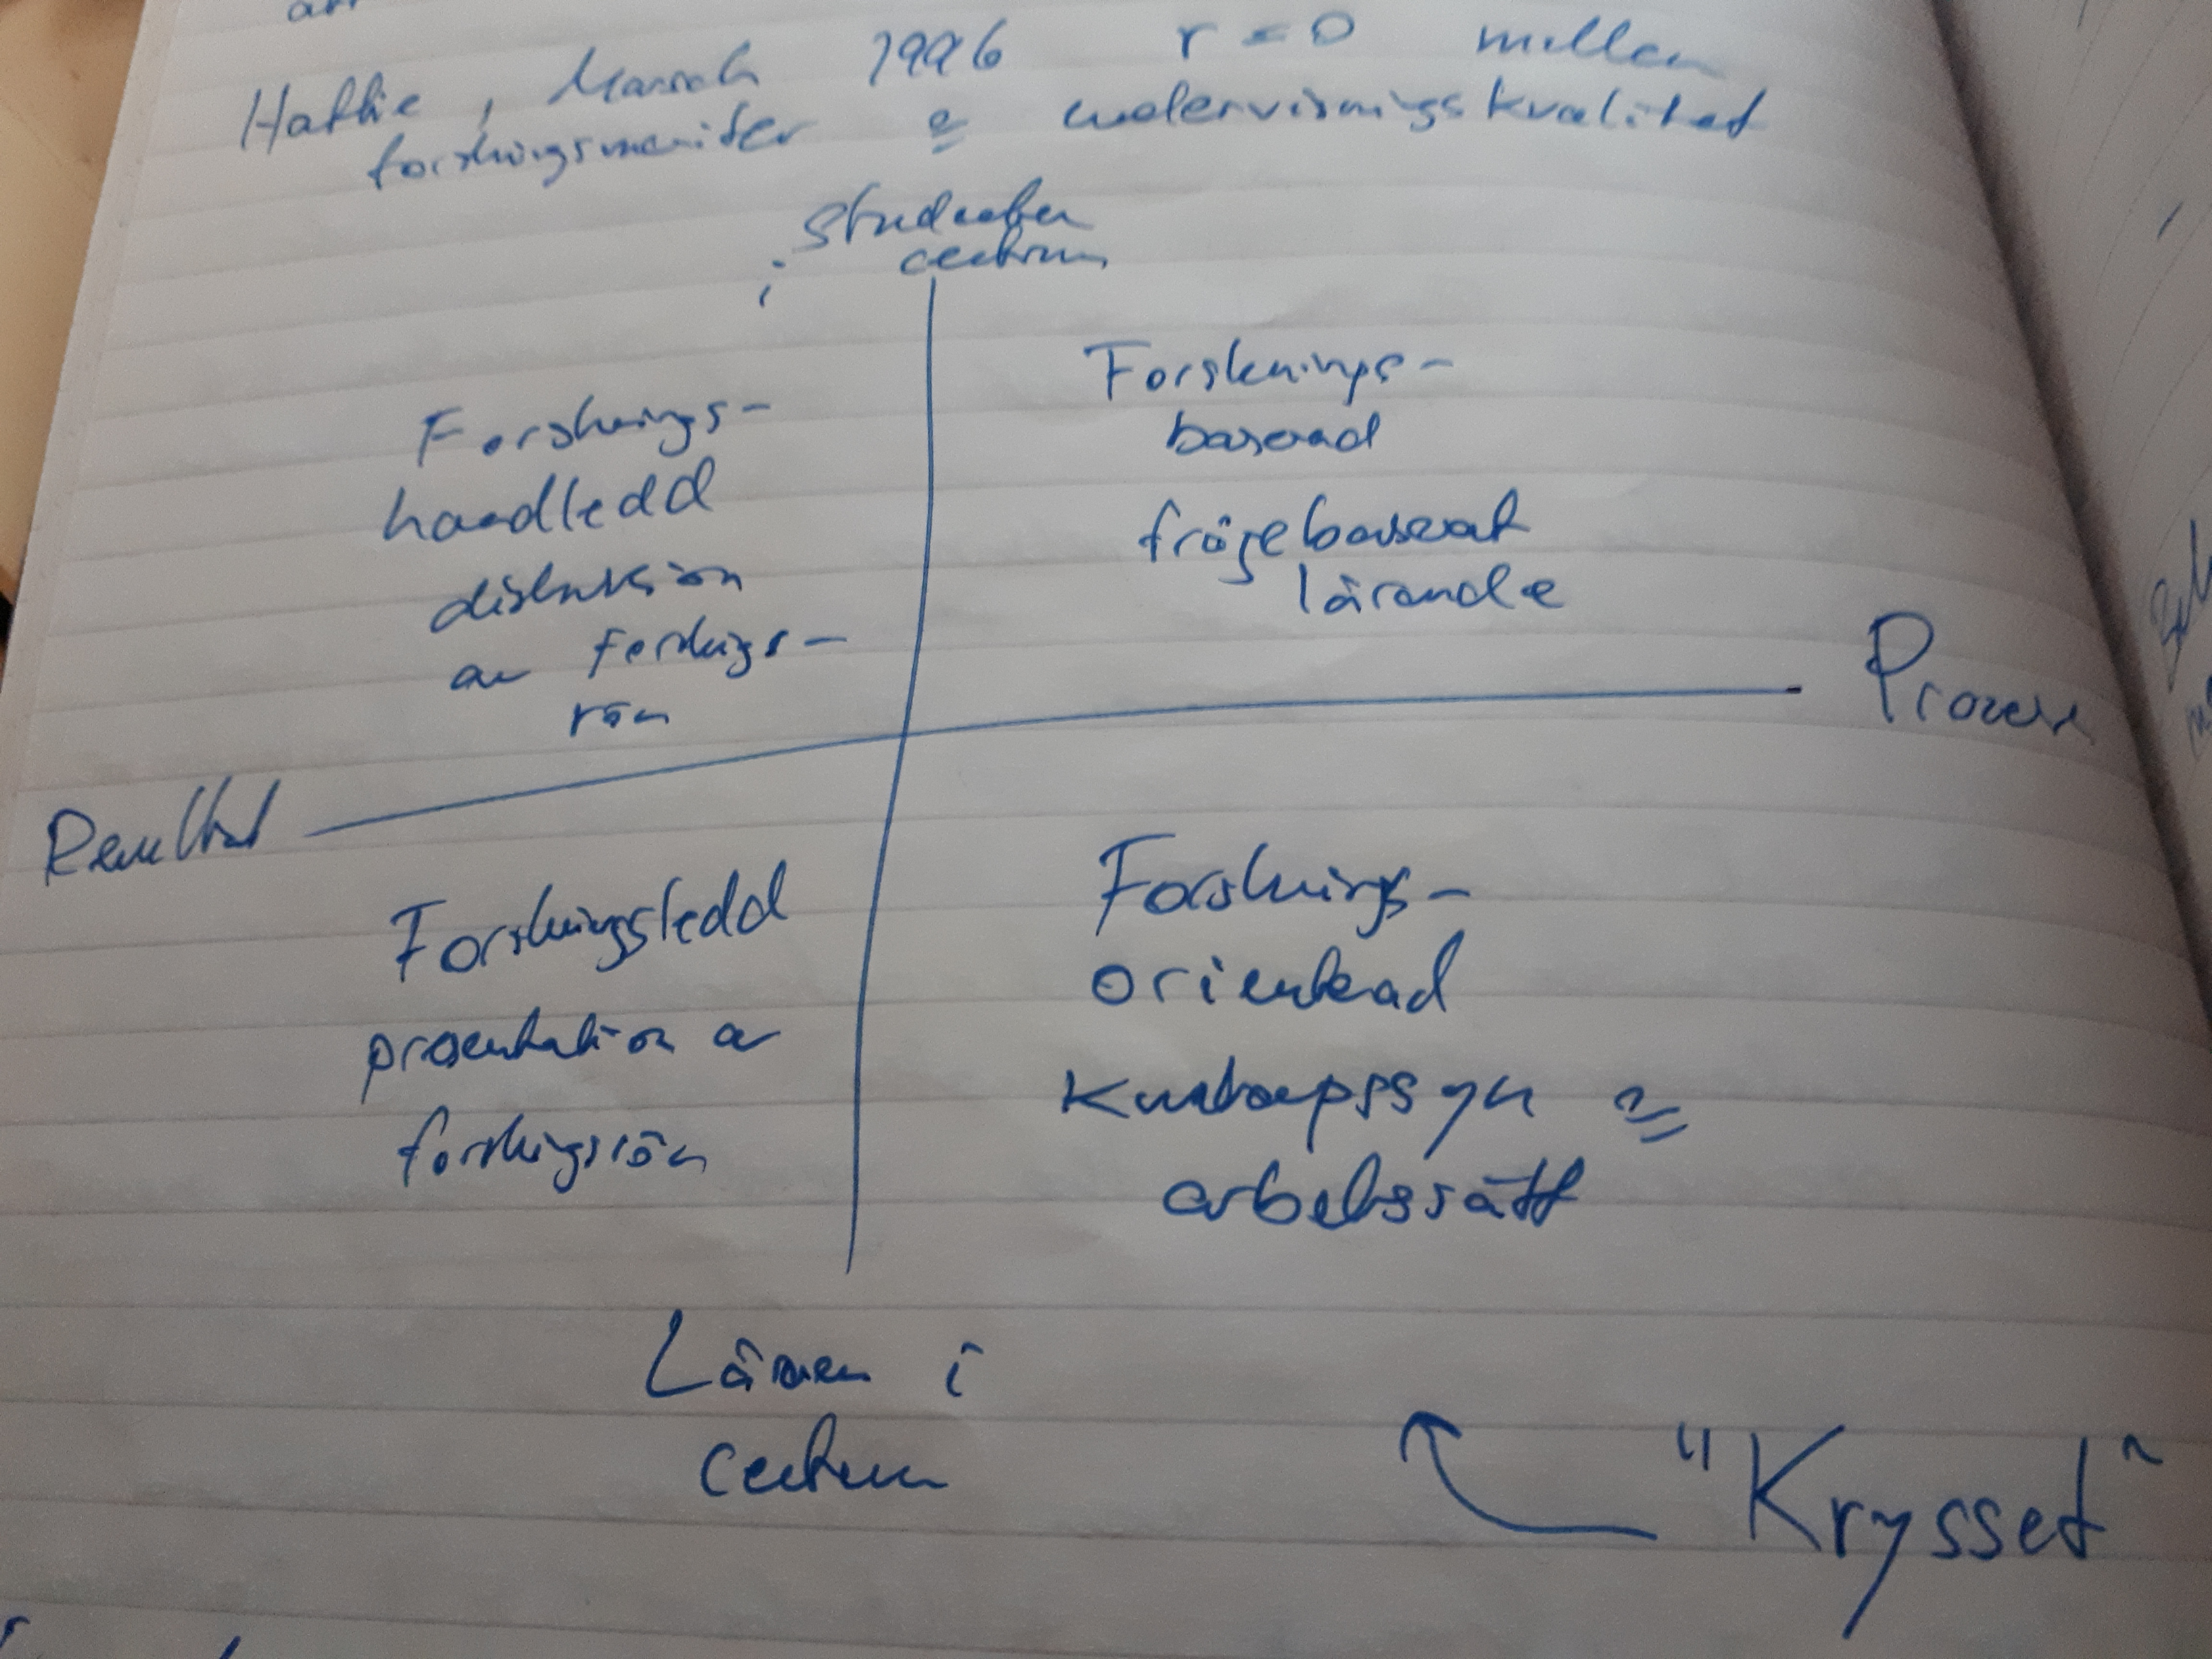 Hattie, Marsh 1996 r = 0 mellan
forskningsmeriter & undervisningskvalitet
studenten
i centrum
Forsknings-
handledd
diskussion
av forsknings-
rön
Forsknings-
baserad
frågebaserat
lärande
Process
Resultat
Forskningsledd
presentation av
forskningsrön
Forsknings-
orienterad
Kunskapssyn &
arbetssätt
Läraren i
centrum
"Krysset"